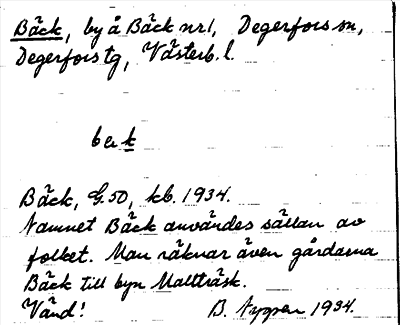 Bäck, by å Bäck nr 1, Degerfors sn,
Degerfors tg, Västerb. l.
Bäck, G.50, kb. 1934.
Namnet Bäck användes sällan av
folket. Man räknar även gårdarna
Bäck till byn Maltträsk.
Vänd! B. 1934.